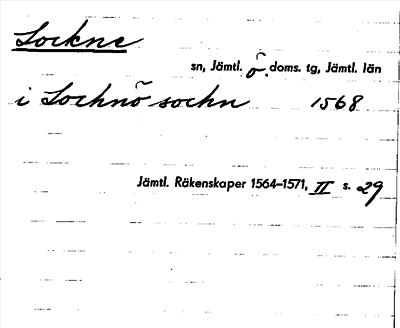 Lockne
sn, Jämtl. ö. doms. tg, Jämtl. län
i Locknö sockn 1568
Jämtl. Räkenskaper 1564–1571, II s. 29